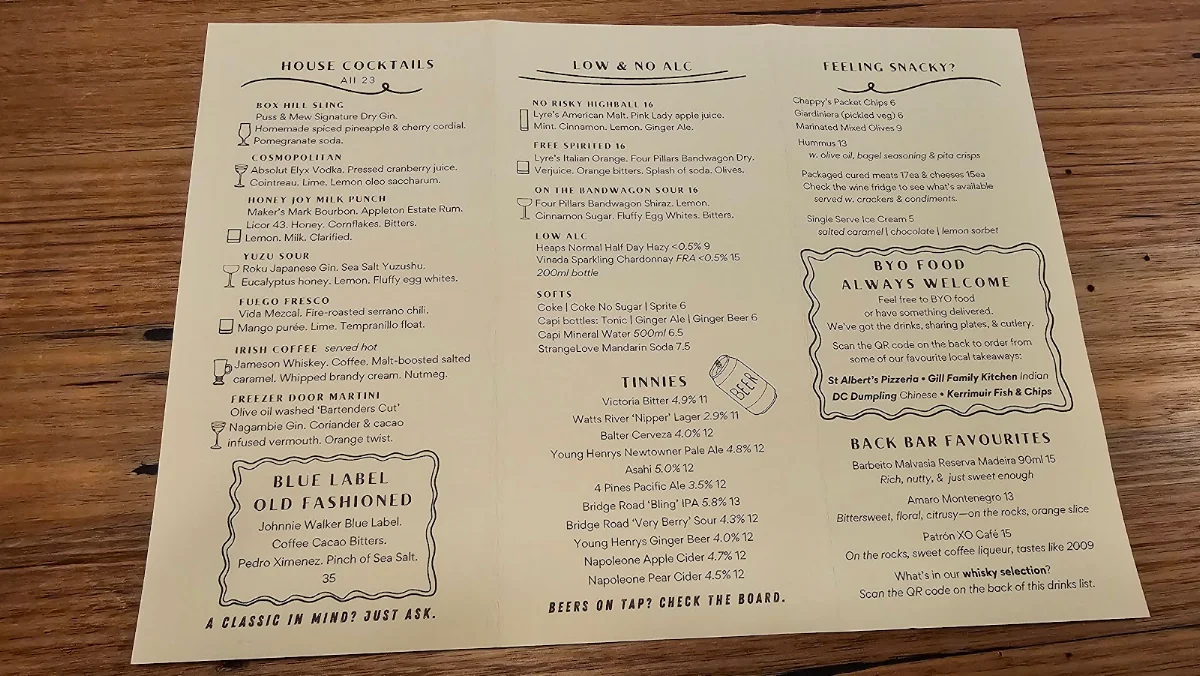 HOUSE COCKTAILS
All 23
BOX HILL SLING
Puss & Mew Signature Dry Gin.
Homemade spiced pineapple & cherry cordial.
Pomegranate soda.
COSMOPOLITAN
Absolut Elyx Vodka. Pressed cranberry juice.
Cointreau. Lime. Lemon oleo saccharum.
HONEY JOY MILK PUNCH
Maker's Mark Bourbon. Appleton Estate Rum.
Licor 43. Honey. Cornflakes. Bitters.
Lemon. Milk. Clarified.
YUZU SOUR
Roku Japanese Gin. Sea Salt Yuzushu.
Eucalyptus honey. Lemon. Fluffy egg whites.
FUEGO FRESCO
Vida Mezcal. Fire-roasted serrano chili.
Mango purée. Lime. Tempranillo float.
IRISH COFFEE served hot
Jameson Whiskey. Coffee. Malt-boosted salted
caramel. Whipped brandy cream. Nutmeg.
FREEZER DOOR MARTINI
Olive oil washed 'Bartenders Cut'
Nagambie Gin. Coriander & cacao
infused vermouth. Orange twist.
BLUE LABEL
OLD FASHIONED
Johnnie Walker Blue Label.
Coffee Cacao Bitters.
Pedro Ximenez. Pinch of Sea Salt.
35
A CLASSIC IN MIND? JUST ASK.
LOW & NO ALC
NO RISKY HIGHBALL 16
Lyre's American Malt. Pink Lady apple juice.
Mint. Cinnamon. Lemon. Ginger Ale.
FREE SPIRITED 16
Lyre's Italian Orange. Four Pillars Bandwagon Dry.
Verjuice. Orange bitters. Splash of soda. Olives.
ON THE BANDWAGON SOUR 16
Four Pillars Bandwagon Shiraz. Lemon.
Cinnamon Sugar. Fluffy Egg Whites. Bitters.
LOW ALC
Heaps Normal Half Day Hazy <0.5% 9
Vinada Sparkling Chardonnay FRA <0.5% 15
200ml bottle
SOFTS
Coke | Coke No Sugar | Sprite 6
Capi bottles: Tonic | Ginger Ale | Ginger Beer 6
Capi Mineral Water 500ml 6.5
StrangeLove Mandarin Soda 7.5
TINNIES
BEER
Victoria Bitter 4.9% 11
Watts River 'Nipper' Lager 2.9% 11
Balter Cerveza 4.0% 12
Young Henrys Newtowner Pale Ale 4.8% 12
Asahi 5.0% 12
4 Pines Pacific Ale 3.5% 12
Bridge Road 'Bling' IPA 5.8% 13
Bridge Road 'Very Berry' Sour 4.3% 12
Young Henrys Ginger Beer 4.0% 12
Napoleone Apple Cider 4.7% 12
Napoleone Pear Cider 4.5% 12
BEERS ON TAP? CHECK THE BOARD.
FEELING SNACKY?
Chappy's Packet Chips 6
Giardiniera (pickled veg) 6
Marinated Mixed Olives 9
Hummus 13
w. olive oil, bagel seasoning & pita crisps
Packaged cured meats 17ea & cheeses 15ea
Check the wine fridge to see what's available
served w. crackers & condiments.
Single Serve Ice Cream 5
salted caramel | chocolate | lemon sorbet
BYO FOOD
ALWAYS WELCOME
Feel free to BYO food
or have something delivered.
We've got the drinks, sharing plates, & cutlery.
Scan the QR code on the back to order from
some of our favourite local takeaways:
St Albert's Pizzeria • Gill Family Kitchen Indian
DC Dumpling Chinese • Kerrimuir Fish & Chips
BACK BAR FAVOURITES
Barbeito Malvasia Reserva Madeira 90ml 15
Rich, nutty, & just sweet enough
Amaro Montenegro 13
Bittersweet, floral, citrusy—on the rocks, orange slice
Patrón XO Café 15
On the rocks, sweet coffee liqueur, tastes like 2009
What's in our whisky selection?
Scan the QR code on the back of this drinks list.